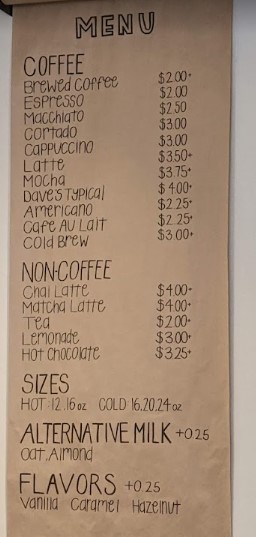 MENU
COFFEE
Brewed Coffee $2.00+
Espresso $2.00
Macchiato $2.50
Cortado $3.00
Cappuccino $3.00
Latte $3.50+
Mocha $3.75+
Dave's Typical $4.00+
Americano $2.25+
Cafe Au Lait $2.25+
Cold Brew $3.00+
NON-COFFEE
Chai Latte $4.00+
Matcha Latte $4.00+
Tea $2.00+
Lemonade $3.00+
Hot Chocolate $3.25+
SIZES
HOT: 12.16 oz COLD 16.20.24 oz
ALTERNATIVE MILK +0.25
Oat, Almond
FLAVORS +0.25
Vanilla Caramel Hazelnut